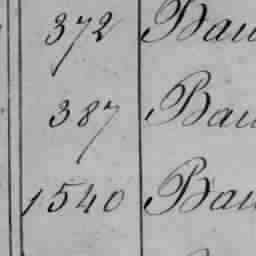 372 Bau
387 Bau
1540 Bau